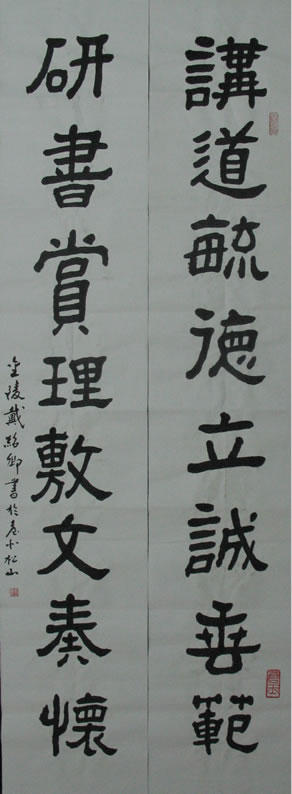 講道毓德立誠垂範
研書賞理敷文奏懷
金陵戴紹卿書於松山